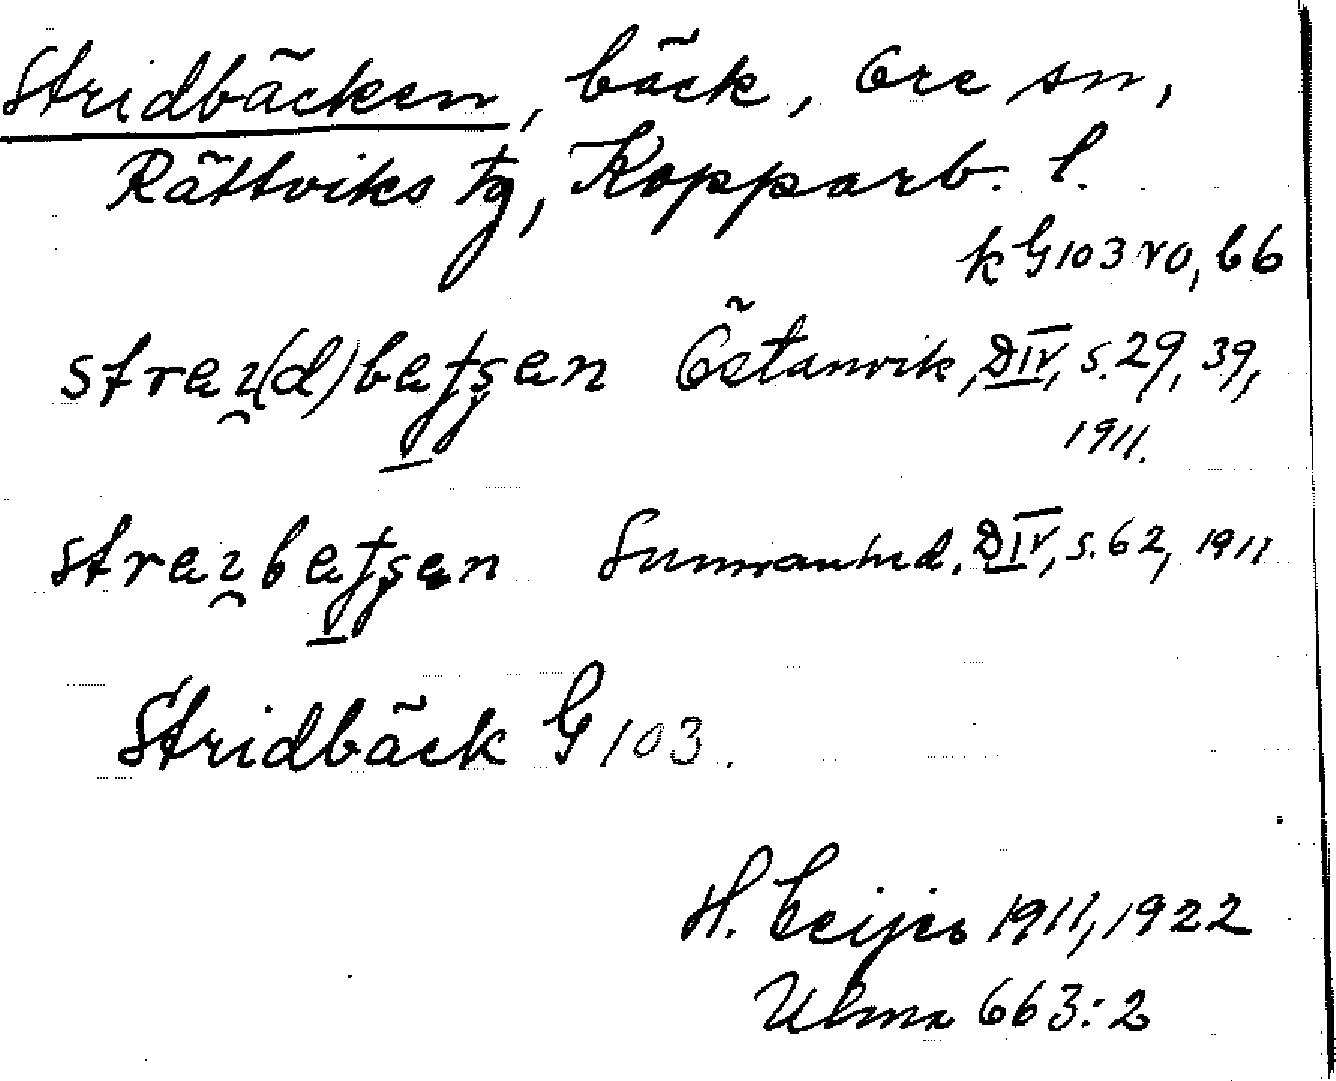 Stridbäcken, bäck, Ore sn,
Rättviks tg, Kopparb. l.
k G103 vo, 66
Östanvik, DIV, s. 29, 39,
1911.
Sunnanhed, DIV, s. 62, 1911
Stridbäck G 103.
H. Geijer 1911, 1922
Ulma 663:2